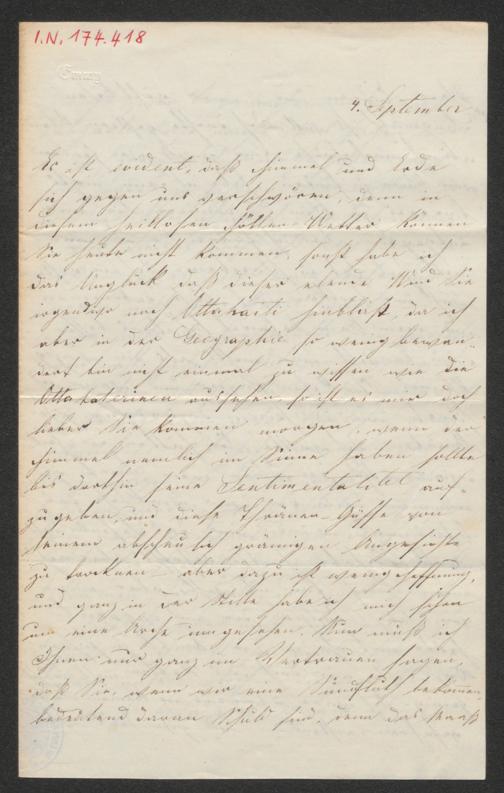 I.N. 174.418
Emmy
4. September
Es ist evident, daß Himmel und Erde
sich gegen uns verschwören, denn in
diesem heillosen Höllen Wetter können
Sie heute nicht kommen, sonst habe ich
das Unglück daß dieser elende Wind Sie
irgendwo nach Ottahaiti hinbläst, da ich
aber in der Geographie so wenig bewan-
dert bin nicht einmal zu wissen wie die
aussehen, so ist es mir doch
lieber Sie kommen morgen, wenn der
Himmel nemlich im Sinne haben sollte
bis dorthin seine Sentimentalität auf-
zugeben, und diese Thränen-Güsse von
seinem abscheulich grämigen Angesichte
zu trocknen – aber dazu ist wenig Hoffnung,
und ganz in der Stille habe ich mich schon
um eine Arche umgesehen. Nun muß ich
Ihnen nur ganz im Vertrauen sagen,
daß Sie, wenn wir eine Sündfluth bekommen,
bedeutend daran Schuld sind, denn das Maaß